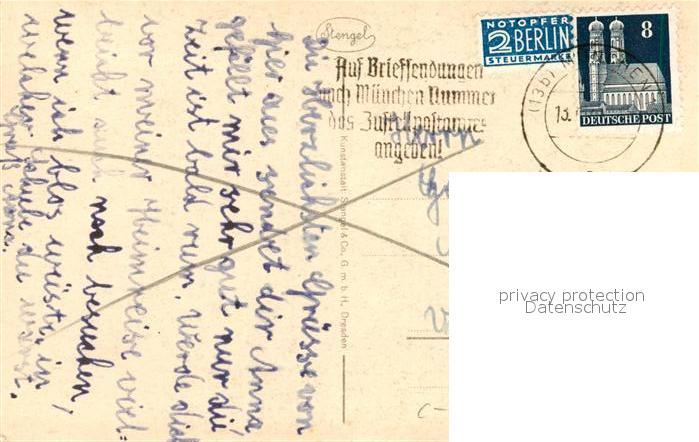 Stengel
NOTOPFER
2 BERLIN
STEUERMARKE
8
DEUTSCHE POST
(13b) MÜNCHEN
13.
Auf Briefsendungen
nach München Nummer
des Zustellpostamtes
angeben!
Kunstanstalt Stengel & Co., G. m. b. H., Dresden
Die herzlichsten Grüsse von
hier aus sendet dir Anna
gefällt mir sehr gut nur die
zeit ist bald rum, werde dich
vor meiner Heimreise viel=
leicht auch noch besuchen,
wenn ich blos wüste, in
welcher du
Gruß Anna.
Herrn
privacy protection
Datenschutz